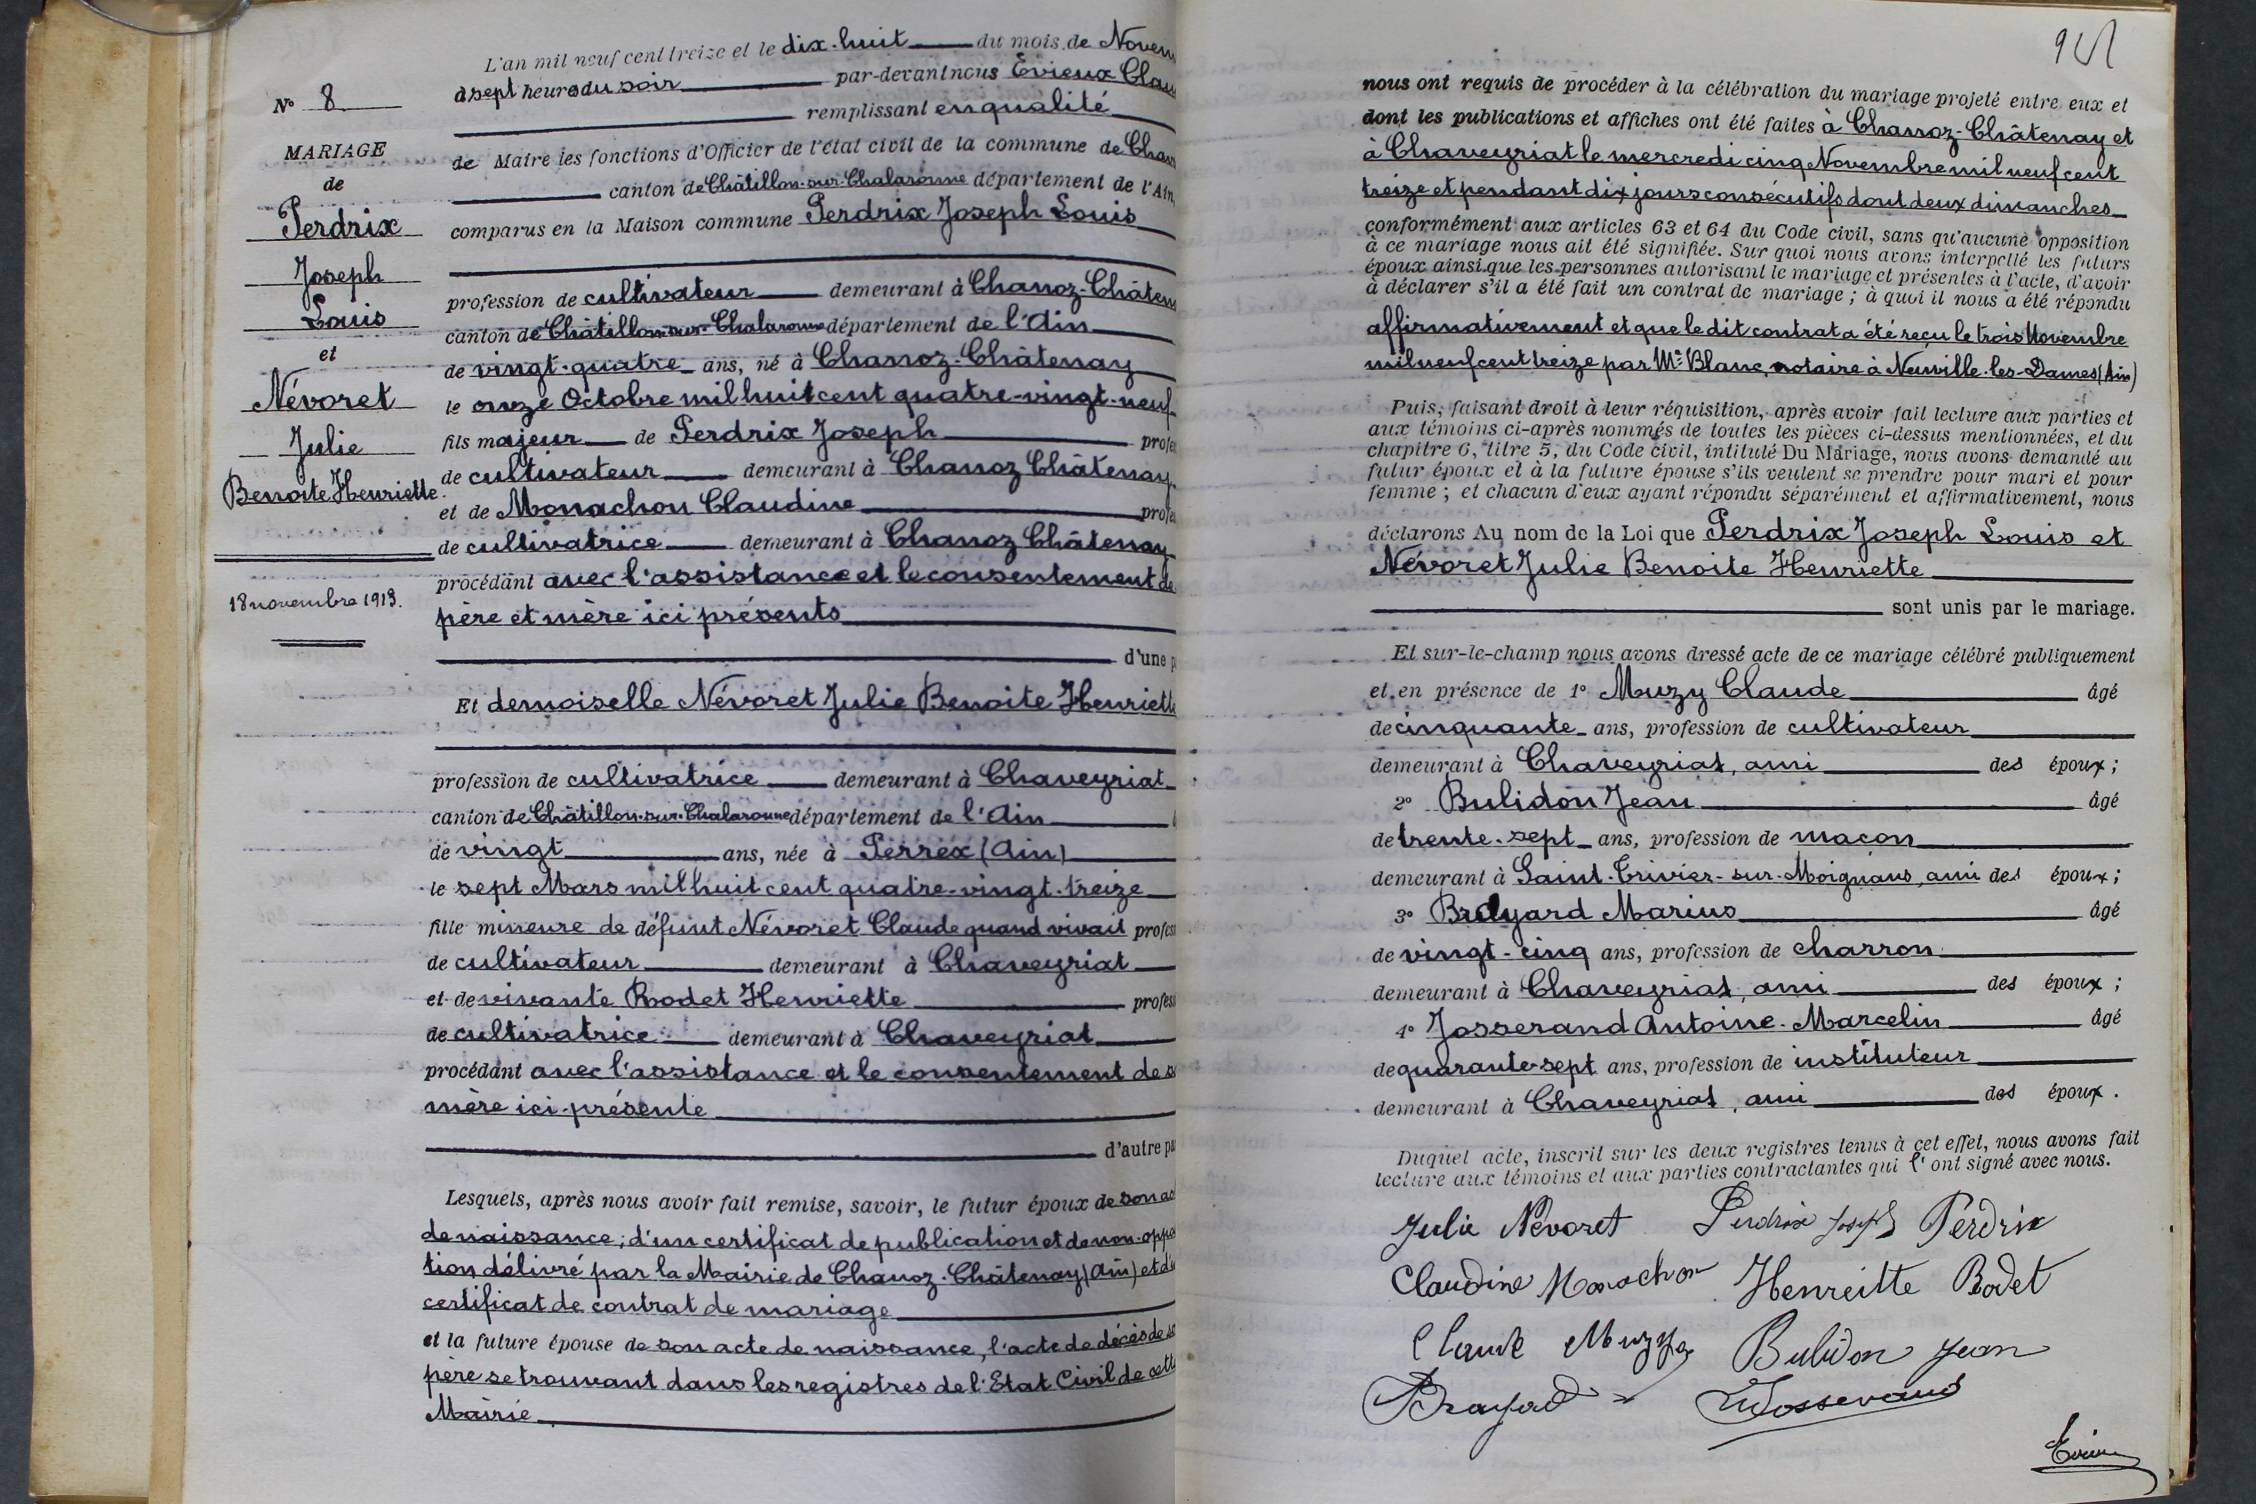 L'an mil neuf cent treize et le dix-huit du mois de Novem
à sept heures du soir par-devant nous Évieux Clau
remplissant en qualité
de Maire les fonctions d'Officier de l'état civil de la commune de Chav
canton de Châtillon-sur-Chalaronne département de l'Ain,
comparus en la Maison commune Perdrix Joseph Louis
profession de cultivateur demeurant à Chanoz-Châten
canton de Châtillon-sur-Chalaronne département de l'Ain
de vingt-quatre ans, né à Chanoz-Châtenay
le onze Octobre mil huit cent quatre-vingt-neuf
fils majeur de Perdrix Joseph profes
de cultivateur demeurant à Chanoz Châtenay
et de Monachon Claudine profes
de cultivatrice demeurant à Chanoz Châtenay
procédant avec l'assistance et le consentement de
père et mère ici présents
d'une p
Et demoiselle Névoret Julie Benoite Henriette
profession de cultivatrice demeurant à Chaveyriat
canton de Châtillon-sur-Chalaronne département de l'Ain
de vingt ans, née à Perrex (Ain)
le sept Mars mil huit cent quatre-vingt-treize
fille mineure de défunt Névoret Claude quand vivait profess
de cultivateur demeurant à Chaveyriat
et de vivante Rodet Henriette profess
de cultivatrice demeurant à Chaveyriat
procédant avec l'assistance et le consentement de s
mère ici présente
d'autre pa
Lesquels, après nous avoir fait remise, savoir, le futur époux de son ac
de naissance; d'un certificat de publication et de non-oppo
tion délivré par la Mairie de Chanoz-Châtenay (Ain) et d'u
certificat de contrat de mariage
et la future épouse de son acte de naissance, l'acte de décès de s
père se trouvant dans les registres de l'Etat Civil de cett
Mairie
N° 8
MARIAGE
de
Perdrix
Joseph
Louis
et
Névoret
Julie
Benoite Henriette
18 novembre 1913.
nous ont requis de procéder à la célébration du mariage projeté entre eux et
dont les publications et affiches ont été faites à Chanoz-Châtenay et
à Chaveyriat le mercredi cinq Novembre mil neuf cent
treize et pendant dix jours consécutifs dont deux dimanches
conformément aux articles 63 et 64 du Code civil, sans qu'aucune opposition
à ce mariage nous ait été signifiée. Sur quoi nous avons interpellé les futurs
époux ainsi que les personnes autorisant le mariage et présentes à l'acte, d'avoir
à déclarer s'il a été fait un contrat de mariage ; à quoi il nous a été répondu
affirmativement et que le dit contrat a été reçu le trois Novembre
mil neuf cent treize par Me Blanc, notaire à Neuville-les-Dames (Ain)
Puis, faisant droit à leur réquisition, après avoir fait lecture aux parties et
aux témoins ci-après nommés de toutes les pièces ci-dessus mentionnées, et du
chapitre 6, titre 5, du Code civil, intitulé Du Mariage, nous avons demandé au
futur époux et à la future épouse s'ils veulent se prendre pour mari et pour
femme ; et chacun d'eux ayant répondu séparément et affirmativement, nous
déclarons Au nom de la Loi que Perdrix Joseph Louis et
Névoret Julie Benoite Henriette
sont unis par le mariage.
Et sur-le-champ nous avons dressé acte de ce mariage célébré publiquement
et en présence de 1° Muzy Claude âgé
de cinquante ans, profession de cultivateur
demeurant à Chaveyriat, ami des époux ;
2° Bulidon Jean âgé
de trente-sept ans, profession de maçon
demeurant à Saint-Trivier-sur-Moignans, ami des époux ;
3° Brayard Marius âgé
de vingt-cinq ans, profession de charron
demeurant à Chaveyriat, ami des époux ;
4° Josserand Antoine-Marcelin âgé
de quarante-sept ans, profession de instituteur
demeurant à Chaveyriat, ami des époux.
Duquel acte, inscrit sur les deux registres tenus à cet effet, nous avons fait
lecture aux témoins et aux parties contractantes qui l'ont signé avec nous.
Julie Névoret Perdrix Joseph Perdrix
Claudine Monachon Henreitte Rodet
Claude Muzy Bulidon Jean
Brayard Josserand
Évieux